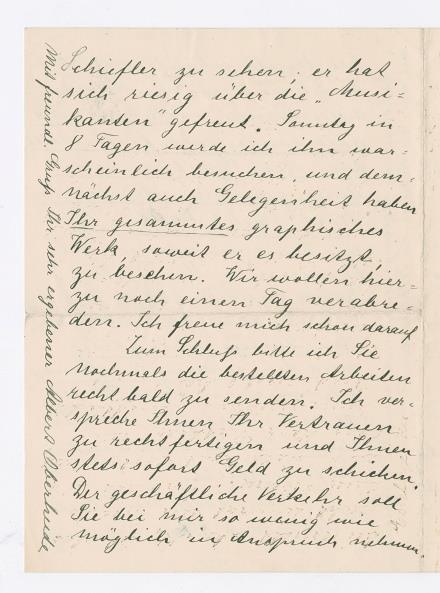 Schiefler zu sehen, er hat
sich riesig über die „Musi=
kanten" gefreut. Sonntag in
8 Tagen werde ich ihn war=
scheinlich besuchen, und dem=
nächst auch Gelegenheit haben
Ihr gesammtes graphisches
Werk, soweit er es besitzt
zu besehen. Wir wollen hier=
zu noch einen Tag verabre=
den. Ich freue mich schon darauf
Zum Schluß bitte ich Sie
nochmals die bestellten Arbeiten
recht bald zu senden. Ich ver=
spreche Ihnen Ihr Vertrauen
zu rechtfertigen und Ihnen
stets sofort Geld zu schicken.
Der geschäftliche Verkehr soll
Sie bei mir so wenig wie
möglich in Anspruch nehmen.
Mit freundl. Gruß Ihr sehr ergebener Albert Oberheide